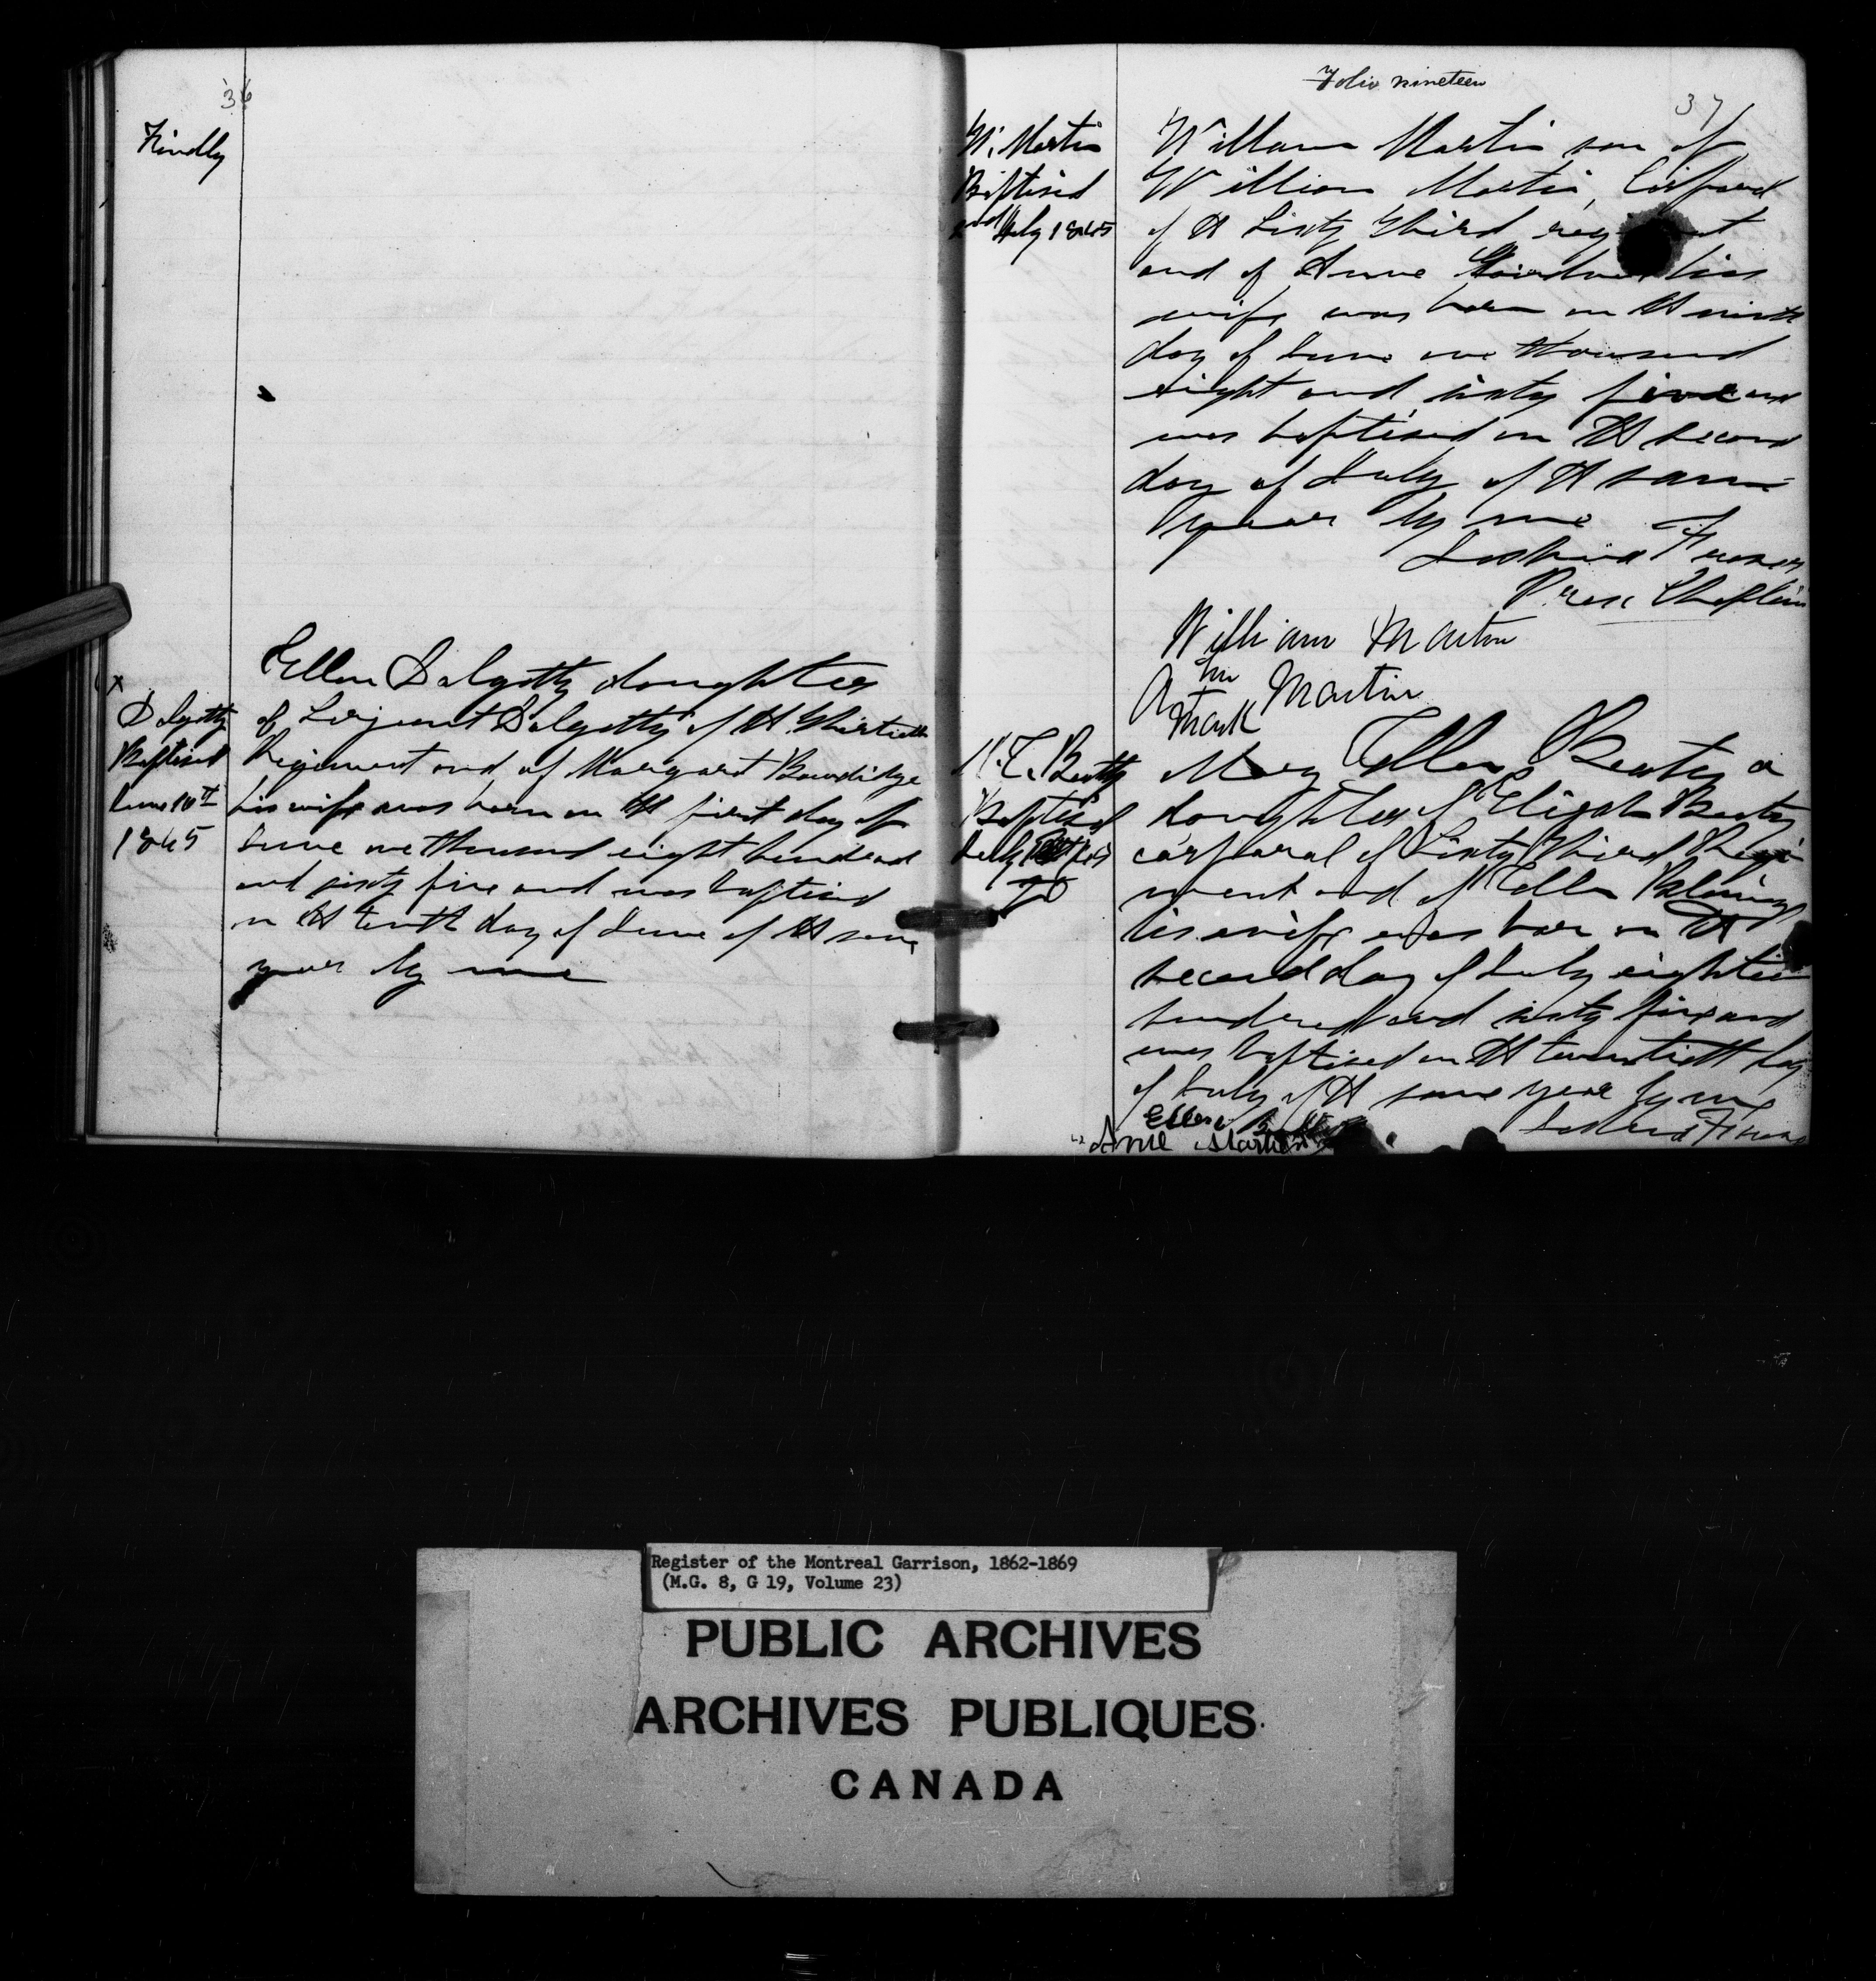 36
Findlly
Ellen Dalgetty daughter
x
Dalgetty
Baptised
June 10th
1865
of Serjeant Dalgetty of the Thirtieth
Regiment and of Margaret
his wife was born on the first day of
June one thousand eight hundred
and sixty five and was baptised
on the tenth day of June of the same
year by me
Folio nineteen
37
W. Martin
Baptised
2nd July 1865
William Martin son of
William Martin, Corporal
of the Sixty third regiment
and of Anne his
wife was born on the ninth
day of June one thousand
eight and sixty five and
was baptised on the second
day of July of the same
year by me
Joshua Fraser
Pres. Chaplain
William Martin
her
A Martin
Mark
M. E. Beatty
Baptised
July 1865
20
Mary Ellen Beaty a
daughter of Elijah Beaty
corporal of Sixty Third Regi
ment and of Ellen
his wife was born on the
second day of July eighteen
hundred and sixty five and
was baptised on the twentieth day
of July of the same year by me
Joshua Fraser
Ellen
Anne Martin
Register of the Montreal Garrison, 1862-1869
(M.G. 8, G 19, Volume 23)
PUBLIC ARCHIVES
ARCHIVES PUBLIQUES
CANADA